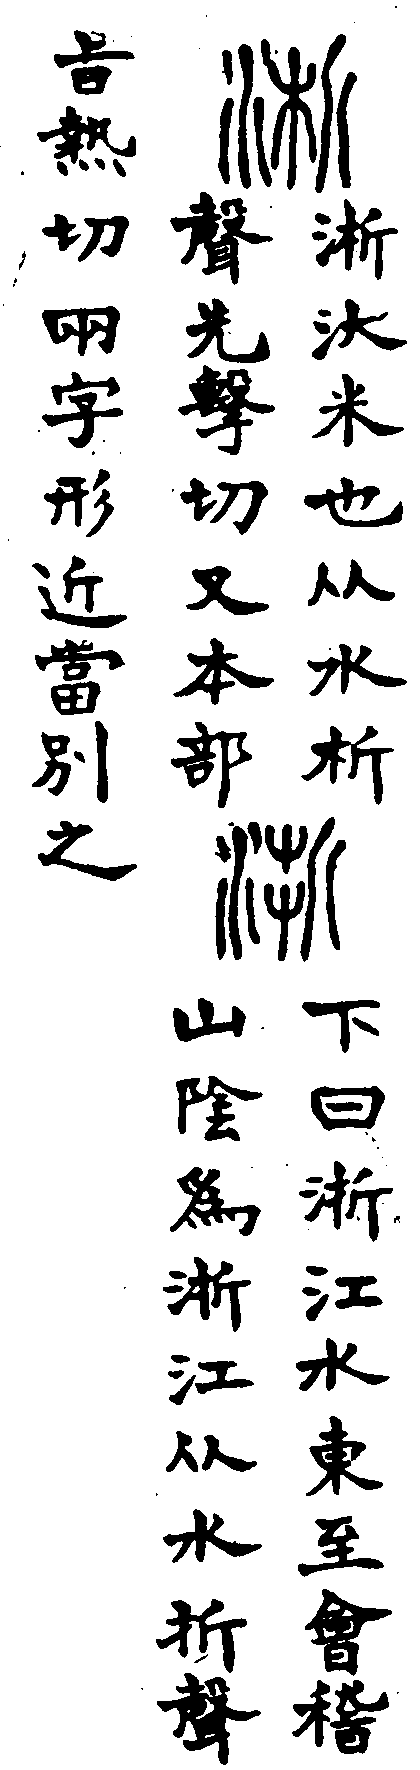 淅
淅汏米也从水析
聲先擊切又本部
浙
下曰浙江水東至會稽
山陰爲浙江从水折聲
旨熱切兩字形近當別之